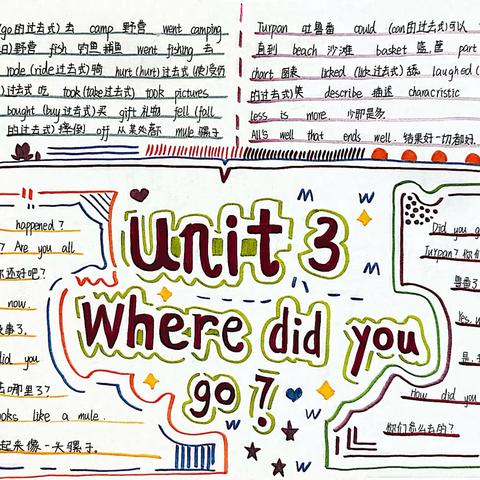 (go的过去式)去 camp 野营 went camping
野营 fish 钓鱼 捕鱼 went fishing 去
rode (ride过去式)骑 hurt (hurt)过去式(使)受伤
过去式 吃 took (take过去式) took pictures
bought (buy过去式)买 gift 礼物 fell (fall
的过去式)摔倒 off 从某处落下 mule 骡子
Turpan 吐鲁番 could (can的过去式)可以
直到 beach 沙滩 basket 篮、筐 part
chart 图表 licked (lick过去式)舔 laughed (
的过去式)笑 describe 描述 characristic
less is more. 少即是多
All's well that ends well. 结果好一切都好.
Unit 3
Where did you
go?
happened?
? Are you all
你还好吧?
now.
故事了.
did you
去哪里了?
looks like a mule.
起来像一头骡子.
Did you g
Turpan? 你们
鲁番了
Yes, w
是,
How did you
你们怎么去的?